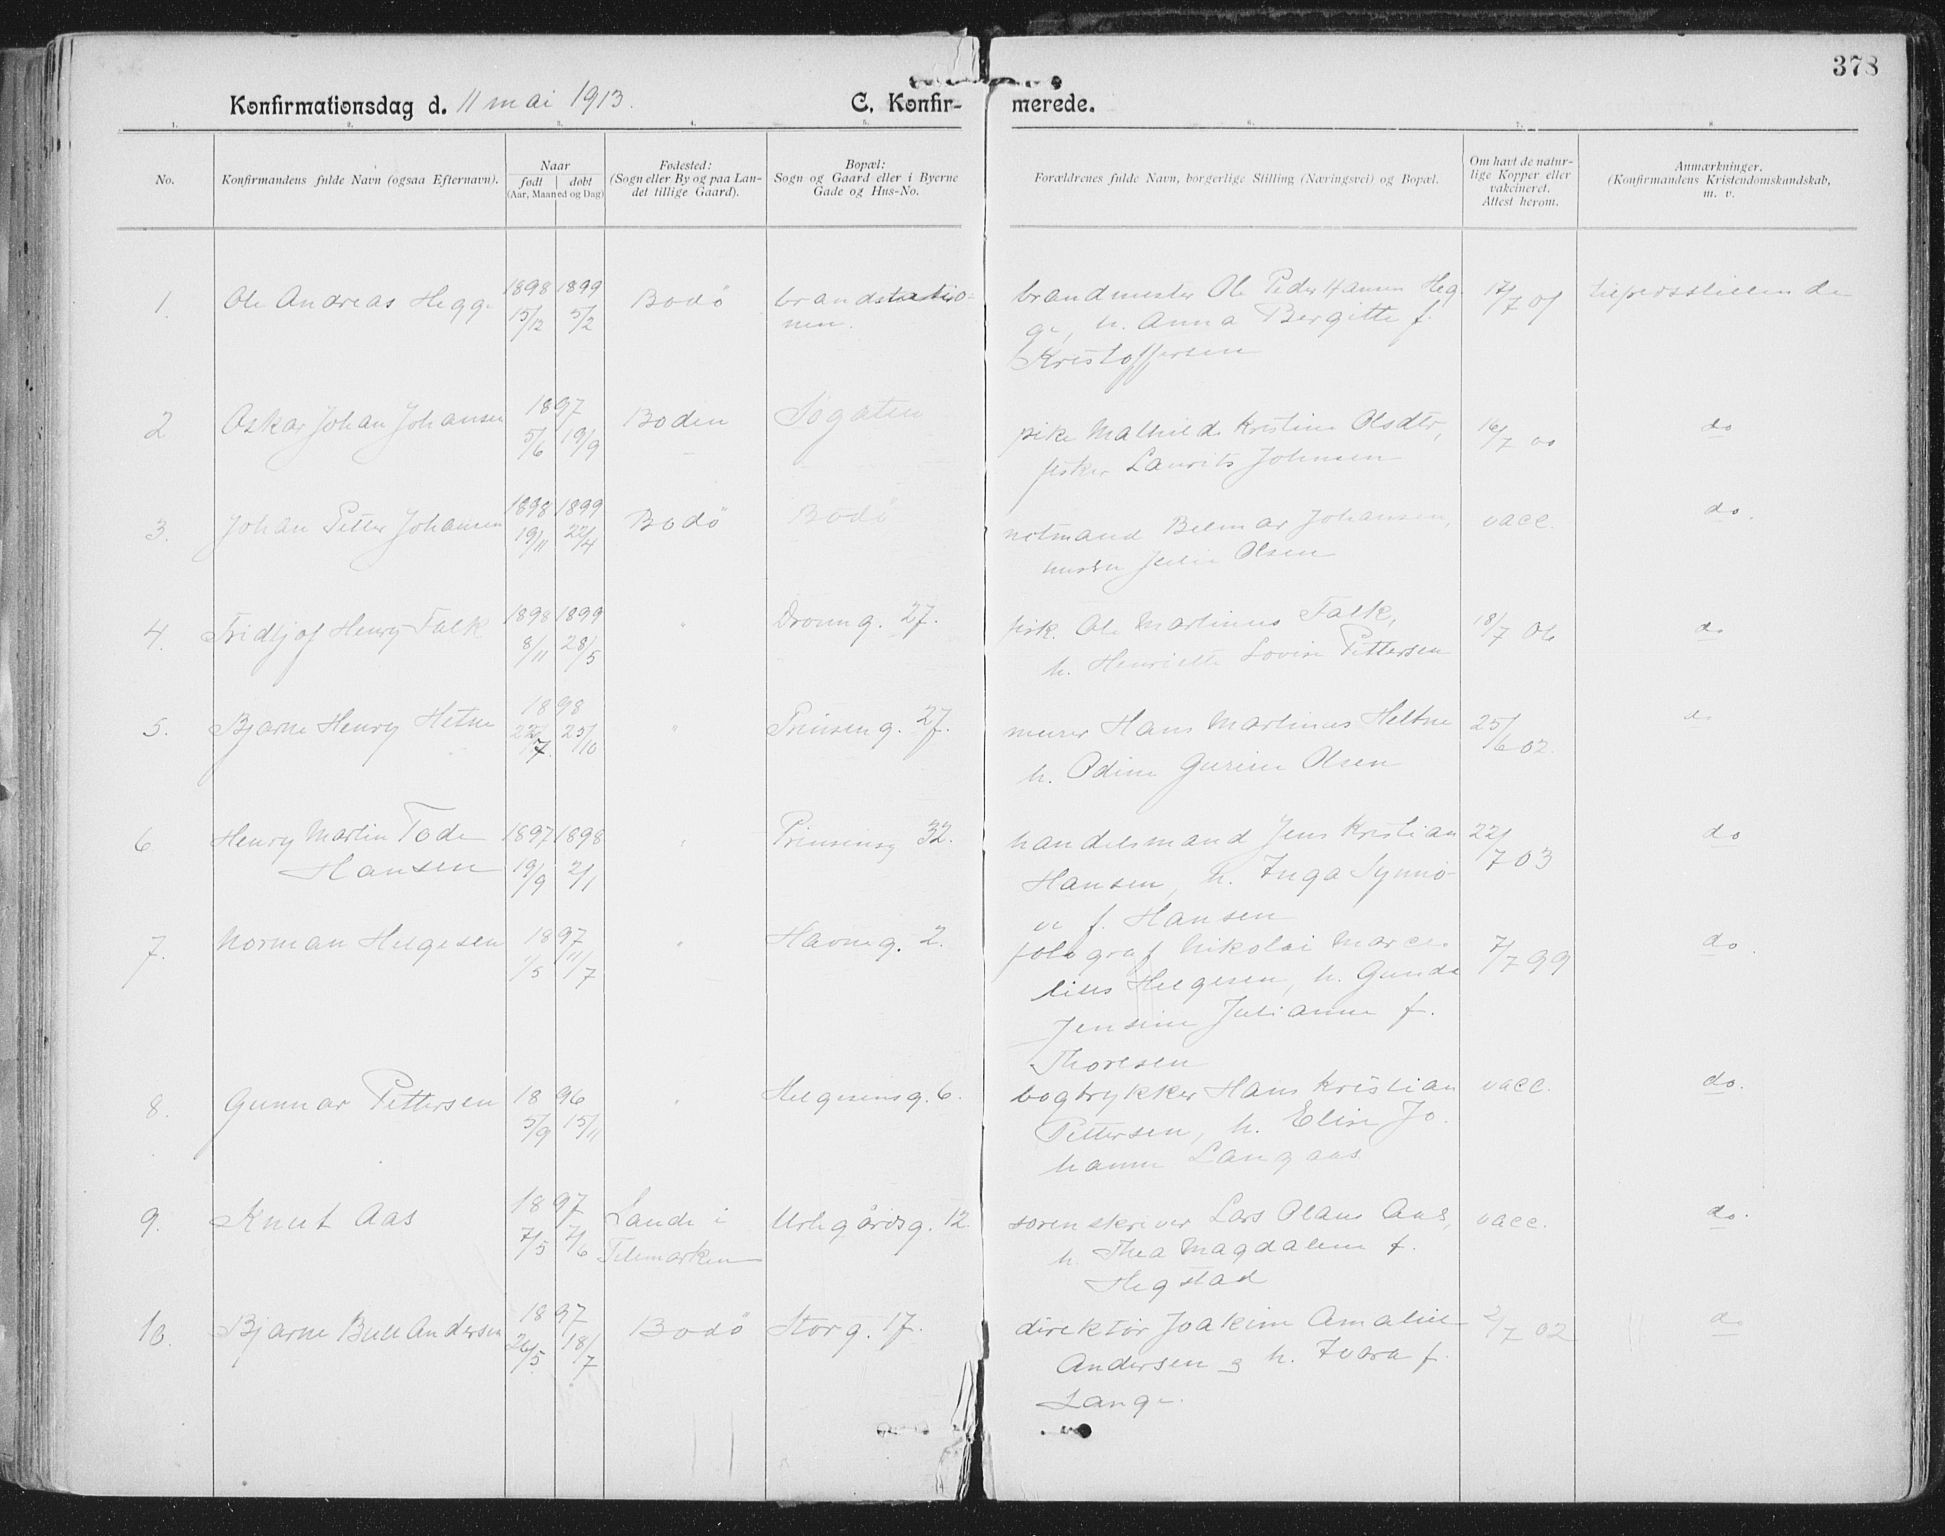 378
Konfirmationsdag d. 11 mai 1913. C. Konfir- merede.
1. 2. 3. 4. 5. 6. 7. 8.
No.
Konfirmandens fulde Navn (ogsaa Efternavn).
Naar
født | døbt
(Aar, Maaned og Dag)
Fødested:
(Sogn eller By og paa Lan-
det tillige Gaard).
Bopæl:
Sogn og Gaard eller i Byerne
Gade og Hus-No.
Forældrenes fulde Navn, borgerlige Stilling (Næringsvei) og Bopæl.
Om havt de natur-
lige Kopper eller
vakcineret.
Attest herom.
Anmærkninger.
(Konfirmandens Kristendomskundskab,
m. v.
1. Ole Andreas Hegge 1898 1899 Bodö brandstatio-
15/12 5/2 nen.
brandmester Ole Peder Hansen Heg- 17/7 01
ge, h. Anna Bergitte f.
Kristoffersen
2 Oskar Johan Johansen 1897 Boden Søgaten
5/6 19/9
pike Mathilde Kristine Olsdtr, 16/7 00 do
fisker Laurits Johnsen
3. Johan Petter Johansen 1898 1899 Bodö Bodö
19/11 22/4
notmand Belmar Johansen, vacc. do.
hustru Julie Olsen
4. Fridtjof Henry Falk 1898 1899 " Dronng. 27.
8/11 28/5
fisk. Ole Martinus Falk, 18/7 06 do
h. Henriette Lovise Pettersen
5. Bjarne Henry Hetne 1898 " Prinseng. 27.
22/7. 25/10
murer Hans Martinus Heltne 25/6 02. do
h. Odine Gurine Olsen
6 Henry Martin Tode 1897 1898 " Prinsensg 32.
Hansen 19/9 2/1
handelsmand Jens Kristian 22/7 03 do
Hansen, h. Inga Synnö-
ve f. Hansen
7. Norman Helgesen 1897 " Havneg. 2.
1/5 11/7
fotograf Nikolai Marce- 7/7 99 do.
lius Helgesen, h. Gunda
Jensine Julianne f.
Thoresen
8. Gunnar Pettersen 1896 " Helgesensg. 6.
5/9 15/11
bogtrykker Hans Kristian vacc. do.
Pettersen, h. Elise Jo-
hanne Langaas
9. Knut Aas 1897 Lande i
7/5 7/6 Telemarken
sorenskriver Lars Olaus Aas, vacc. do.
h. Thea Magdalene f.
Hegstad
10. Bjarne Bull Andersen 1897 Bodö Storg. 17.
26/5 18/7
direktör Joakim Amalius 2/7 02 do
Andersen g h. Ivara f.
Lange.